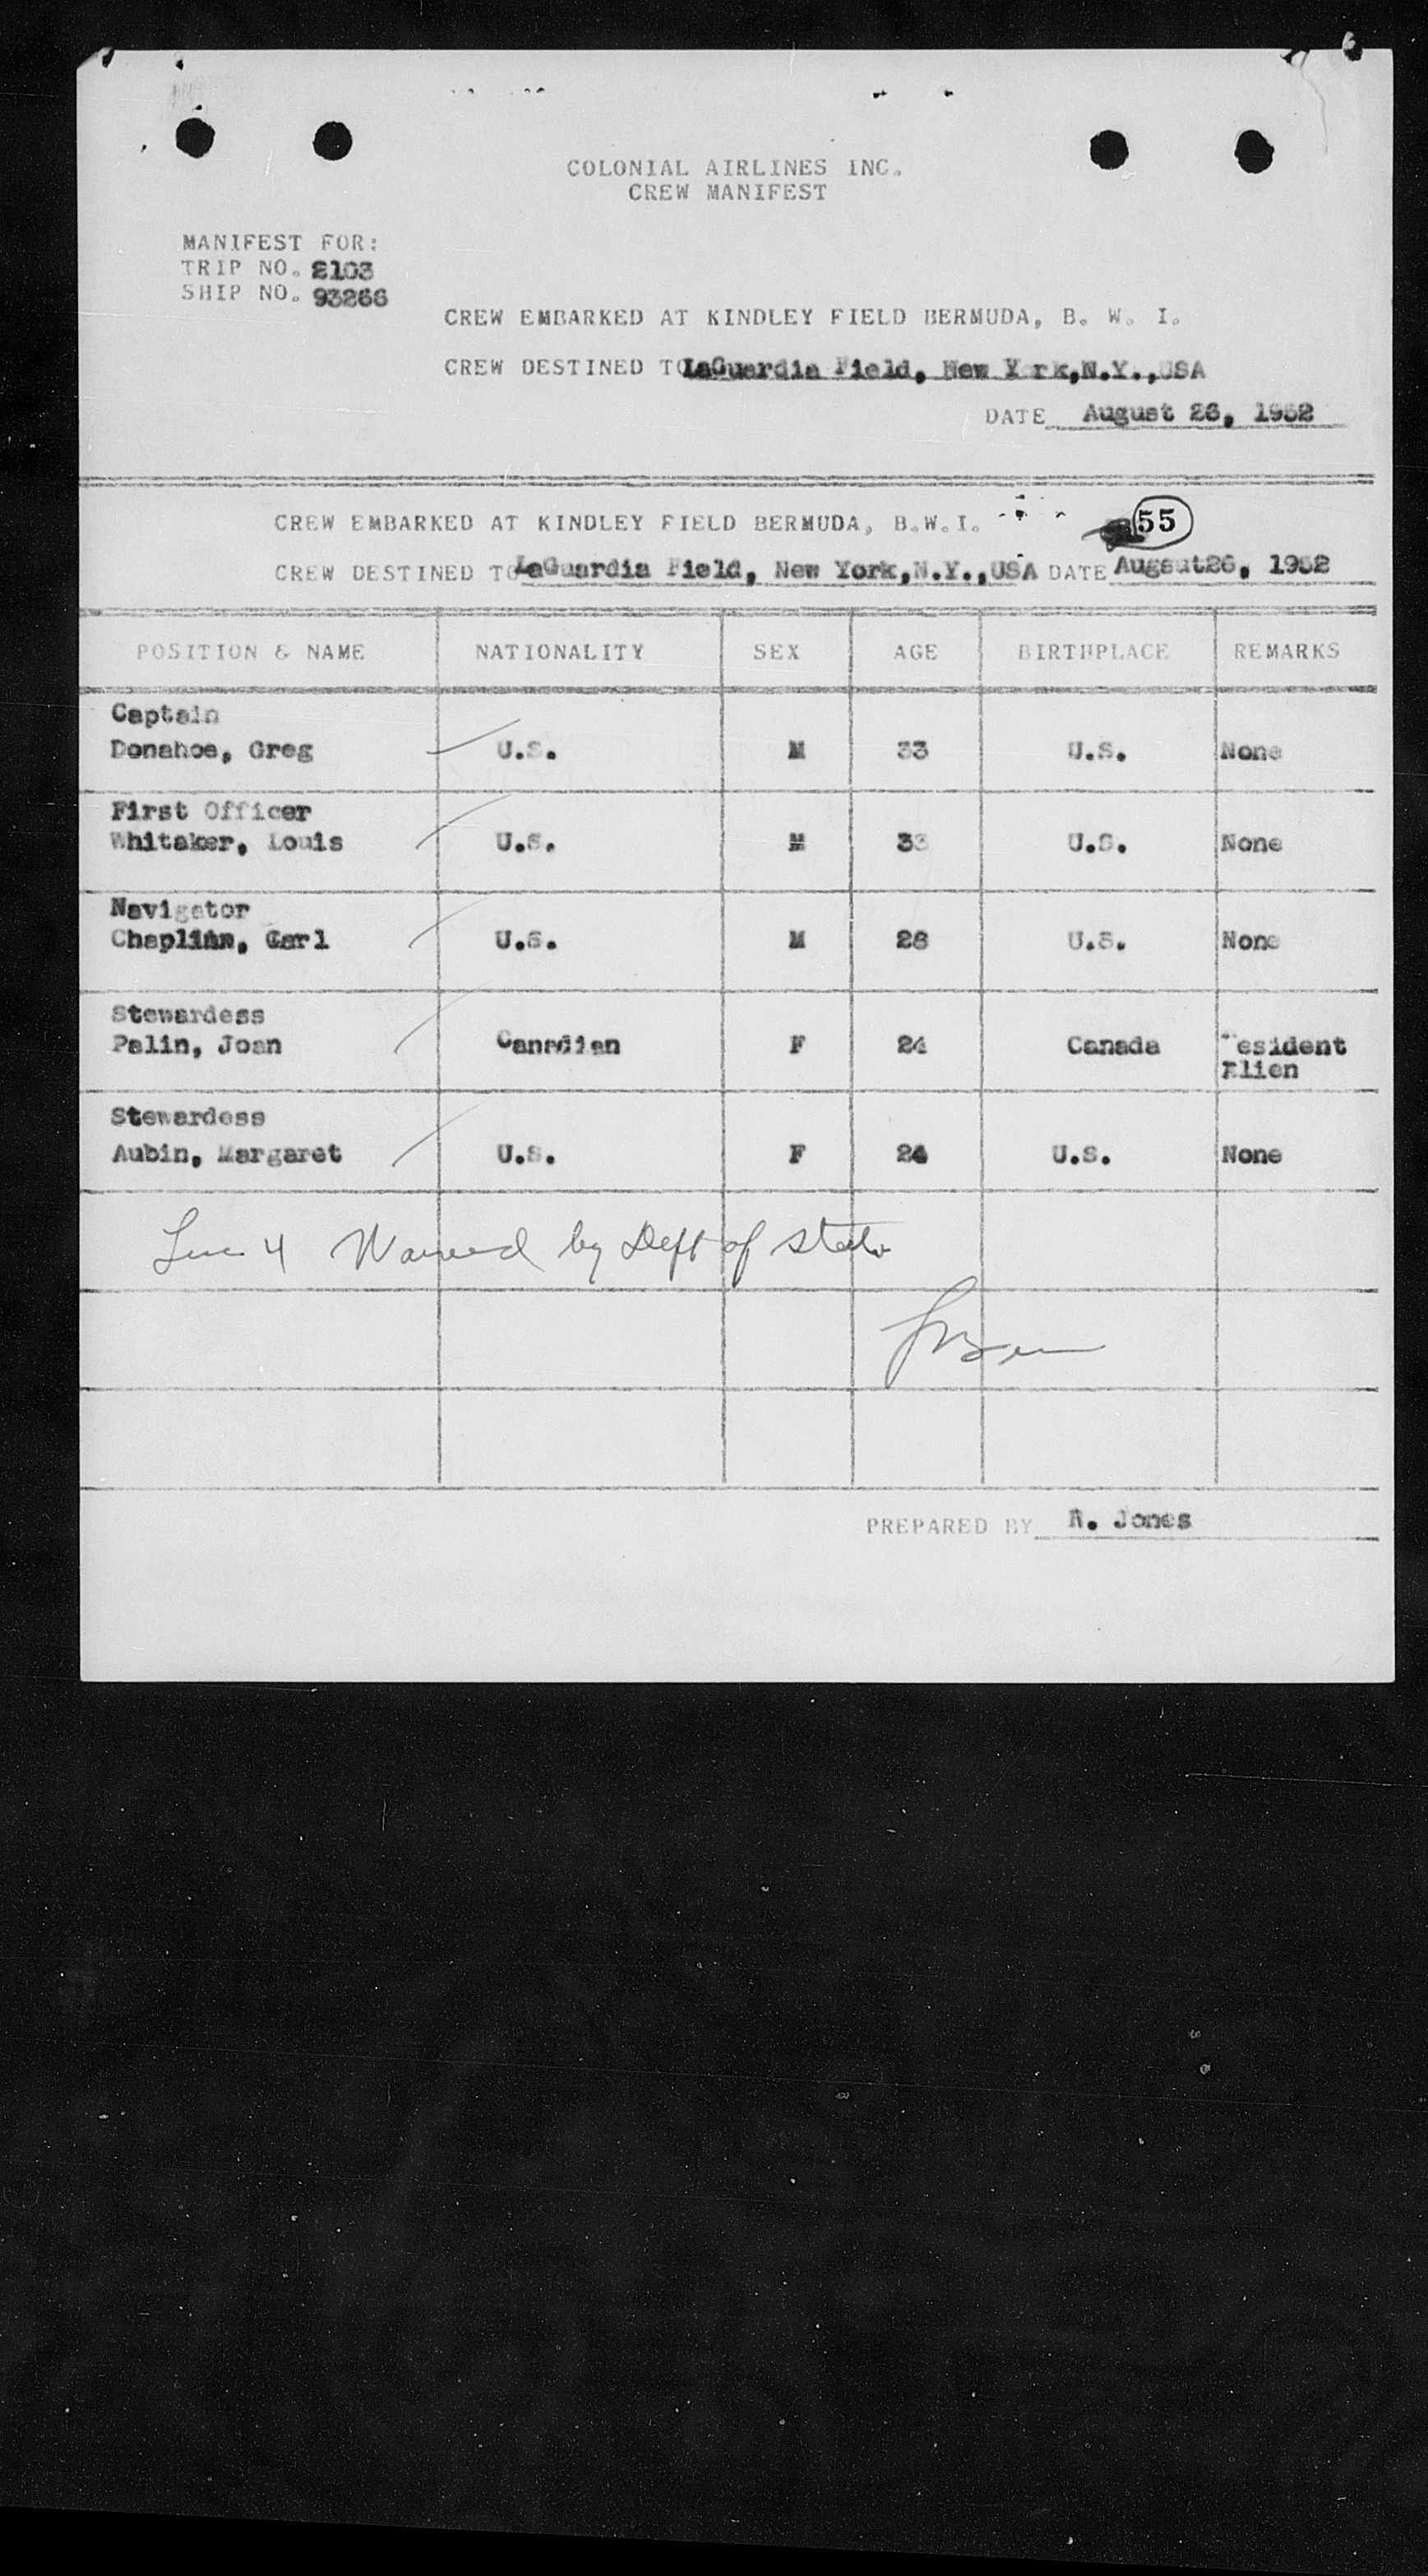 COLONIAL AIRLINES INC.
CREW MANIFEST
MANIFEST FOR:
TRIP NO. 2103
SHIP NO. 93266
CREW EMBARKED AT KINDLEY FIELD BERMUDA, B. W. I.
CREW DESTINED TO LaGuardia Field, New Y rk,N.Y.,USA
DATE August 26, 1952
55
CREW EMBARKED AT KINDLEY FIELD BERMUDA, B.W.I.
CREW DESTINED TO LaGuardia Field, New York,N.Y.,USA DATE Augsut26, 1952
POSITION & NAME NATIONALITY SEX AGE BIRTHPLACE REMARKS
Captain
Donahoe, Greg U.S. M 33 U.S. None
First Officer
Whitaker, Louis U.S. M 33 U.S. None
Navigator
Chaplinn, Carl U.S. M 28 U.S. None
Stewardess
Palin, Joan Canadian F 24 Canada Resident
Alien
Stewardess
Aubin, Margaret U.S. F 24 U.S. None
Line 4 Waived by Dept of State
PREPARED BY R. Jones